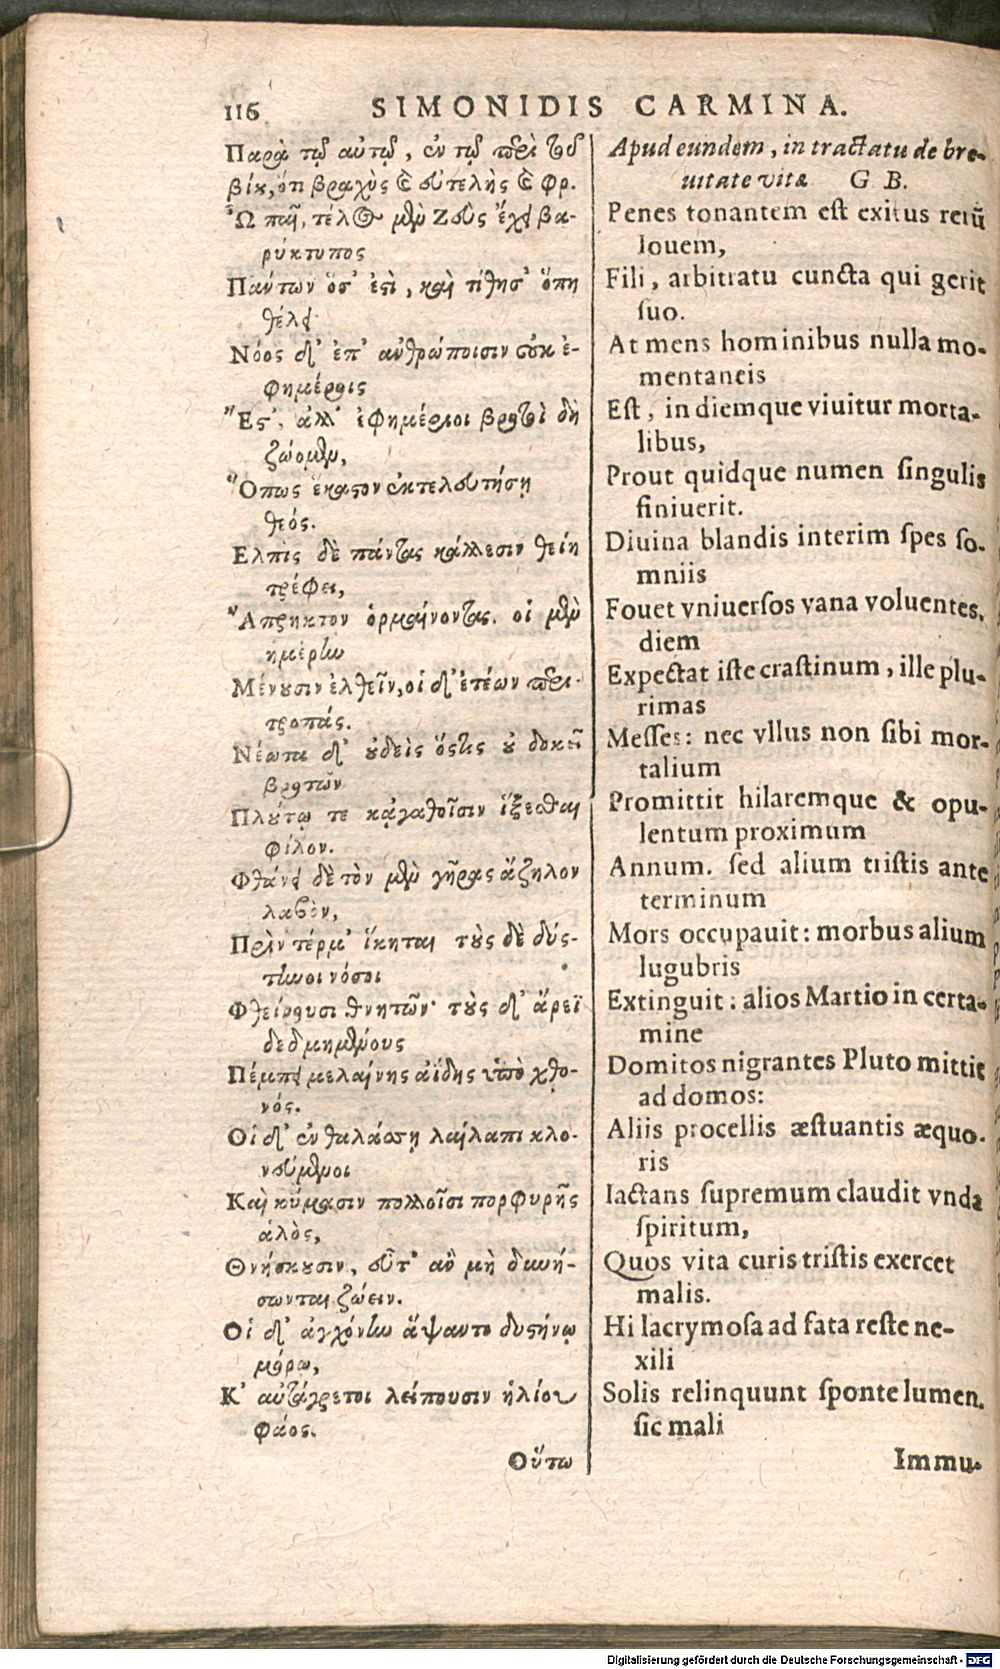 116 SIMONIDIS CARMINA.
Παρὰ τῷ αὐτῷ, ἐν τῷ περὶ τοῦ
βίου, ὅτι βραχὺς καὶ εὐτελὴς καὶ φρ.
Ὦ παῖ, τέλος μὲν Ζεὺς ἔχει βα-
ρύκτυπος
Πάντων ὅσ' ἐστὶ, καὶ τίθησ' ὅπη
θέλει
Νόος δ' ἐπ' ἀνθρώποισιν οὐκ ἐ-
φημέροις
Ἔστ', ἀλλ' ἐφημέριοι βροτοὶ δὴ
ζώομεν,
Ὅπως ἕκαστον ἐκτελευτήσῃ
θεός.
Ελπὶς δὲ πάντας κάλλεσιν θείη
τρέφει,
Ἄπρηκτον ὁρμαίνοντας. οἱ μὲν
ἡμέρην
Μένουσιν ἐλθεῖν, οἱ δ' ἐτέων περι-
τροπάς.
Νέωτα δ' οὐδεὶς ὅστις οὐ δοκεῖ
βροτῶν
Πλούτῳ τε κἀγαθοῖσιν ἵξεσθαι
φίλον.
Φθάνει δὲ τὸν μὲν γῆρας ἄζηλον
λαβὸν,
Πρὶν τέρμ' ἵκηται τοὺς δὲ δύς-
τηνοι νόσοι
Φθείρουσι θνητῶν· τοὺς δ' ἄρεϊ
δεδμημένους
Πέμπει μελαίνης ἀΐδης ὑπὸ χθο-
νός.
Οἱ δ' ἐν θαλάσσῃ λαίλαπι κλο-
νεύμενοι
Καὶ κύμασιν πολλοῖσι πορφυρῆς
ἁλὸς,
Θνήσκουσιν, εὖτ' ἂν μὴ δυνή-
σωνται ζώειν.
Οἱ δ' ἀγχόνην ἅψαντο δυστήνῳ
μόρῳ,
Κ' αὐτάγρετοι λείπουσιν ἡλίου
φάος.
Οὕτω
Apud eundem, in tractatu de bre-
uitate vitæ G B.
Penes tonantem est exitus rerũ
Iouem,
Fili, arbitratu cuncta qui gerit
suo.
At mens hominibus nulla mo-
mentaneis
Est, in diemque viuitur morta-
libus,
Prout quidque numen singulis
finiuerit.
Diuina blandis interim spes so-
mniis
Fouet vniuersos vana voluentes.
diem
Expectat iste crastinum, ille plu-
rimas
Messes: nec vllus non sibi mor-
talium
Promittit hilaremque & opu-
lentum proximum
Annum. sed alium tristis ante
terminum
Mors occupauit: morbus alium
lugubris
Extinguit: alios Martio in certa-
mine
Domitos nigrantes Pluto mittit
ad domos:
Aliis procellis æstuantis æquo-
ris
Iactans supremum claudit vnda
spiritum,
Quos vita curis tristis exercet
malis.
Hi lacrymosa ad fata reste ne-
xili
Solis relinquunt sponte lumen.
sic mali
Immu-
Digitalisierung gefördert durch die Deutsche Forschungsgemeinschaft - DFG